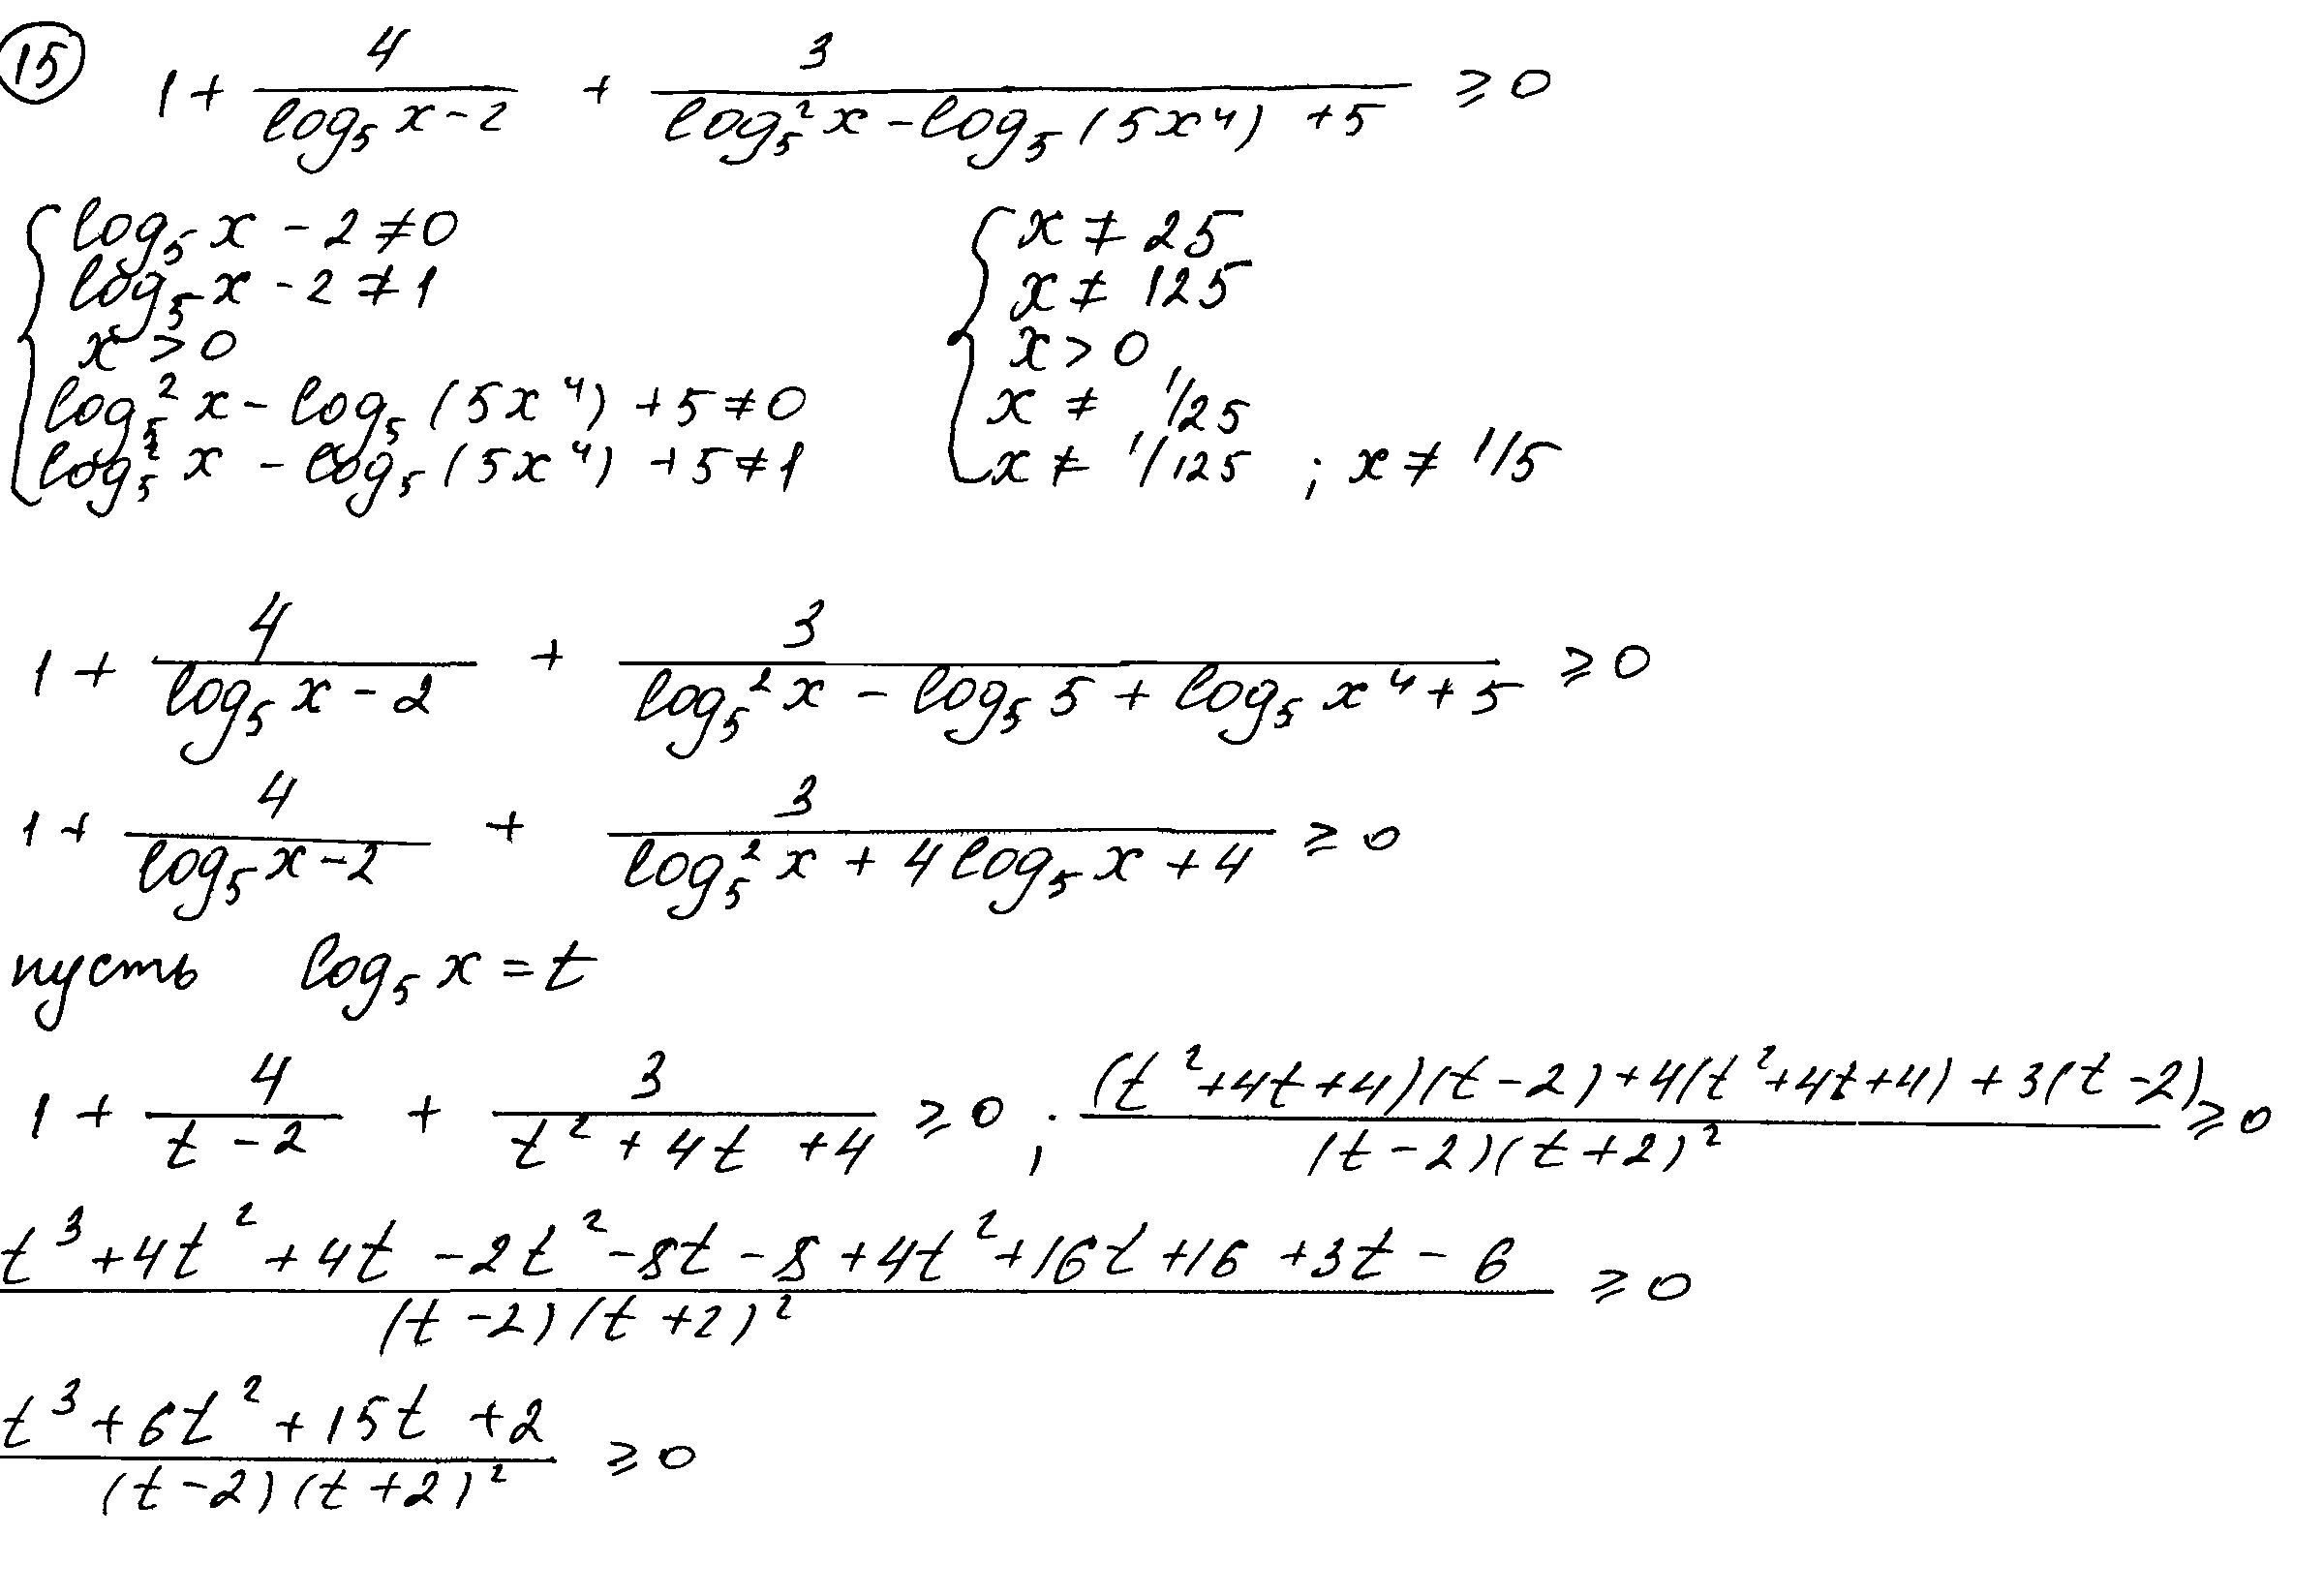 15
1 + 4/(log₅ x - 2) + 3/(log₅² x - log₅ (5x⁴) + 5) ≥ 0
{ log₅ x - 2 ≠ 0 { x ≠ 25
log₅ x - 2 ≠ 1 x ≠ 125
x > 0 x > 0
log₅² x - log₅ (5x⁴) + 5 ≠ 0 x ≠ 1/25
log₅² x - log₅ (5x⁴) + 5 ≠ 1 x ≠ 1/125 ; x ≠ 1/5
1 + 4/(log₅ x - 2) + 3/(log₅² x - log₅ 5 + log₅ x⁴ + 5) ≥ 0
1 + 4/(log₅ x - 2) + 3/(log₅² x + 4 log₅ x + 4) ≥ 0
пусть log₅ x = t
1 + 4/(t - 2) + 3/(t² + 4t + 4) ≥ 0 ; ((t² + 4t + 4)(t - 2) + 4(t² + 4t + 4) + 3(t - 2))/((t - 2)(t + 2)²) ≥ 0
(t³ + 4t² + 4t - 2t² - 8t - 8 + 4t² + 16t + 16 + 3t - 6)/((t - 2)(t + 2)²) ≥ 0
(t³ + 6t² + 15t + 2)/((t - 2)(t + 2)²) ≥ 0